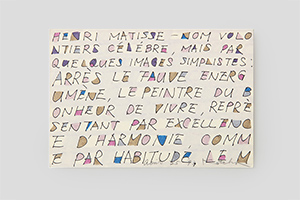 HENRI MATISSE - NOM VOLO
NTIERS CÉLÉBRÉ, MAIS PAR
QUELQUES IMAGES SIMPLISTES:
APRÈS LE FAUVE ENERG
UMÈNE, LE PEINTRE DU B
ONHEUR DE VIVRE, REPRÉ
SENTANT PAR EXCELLENC
E D'HARMONIE, COMM
E PAR HABITUDE, LE M